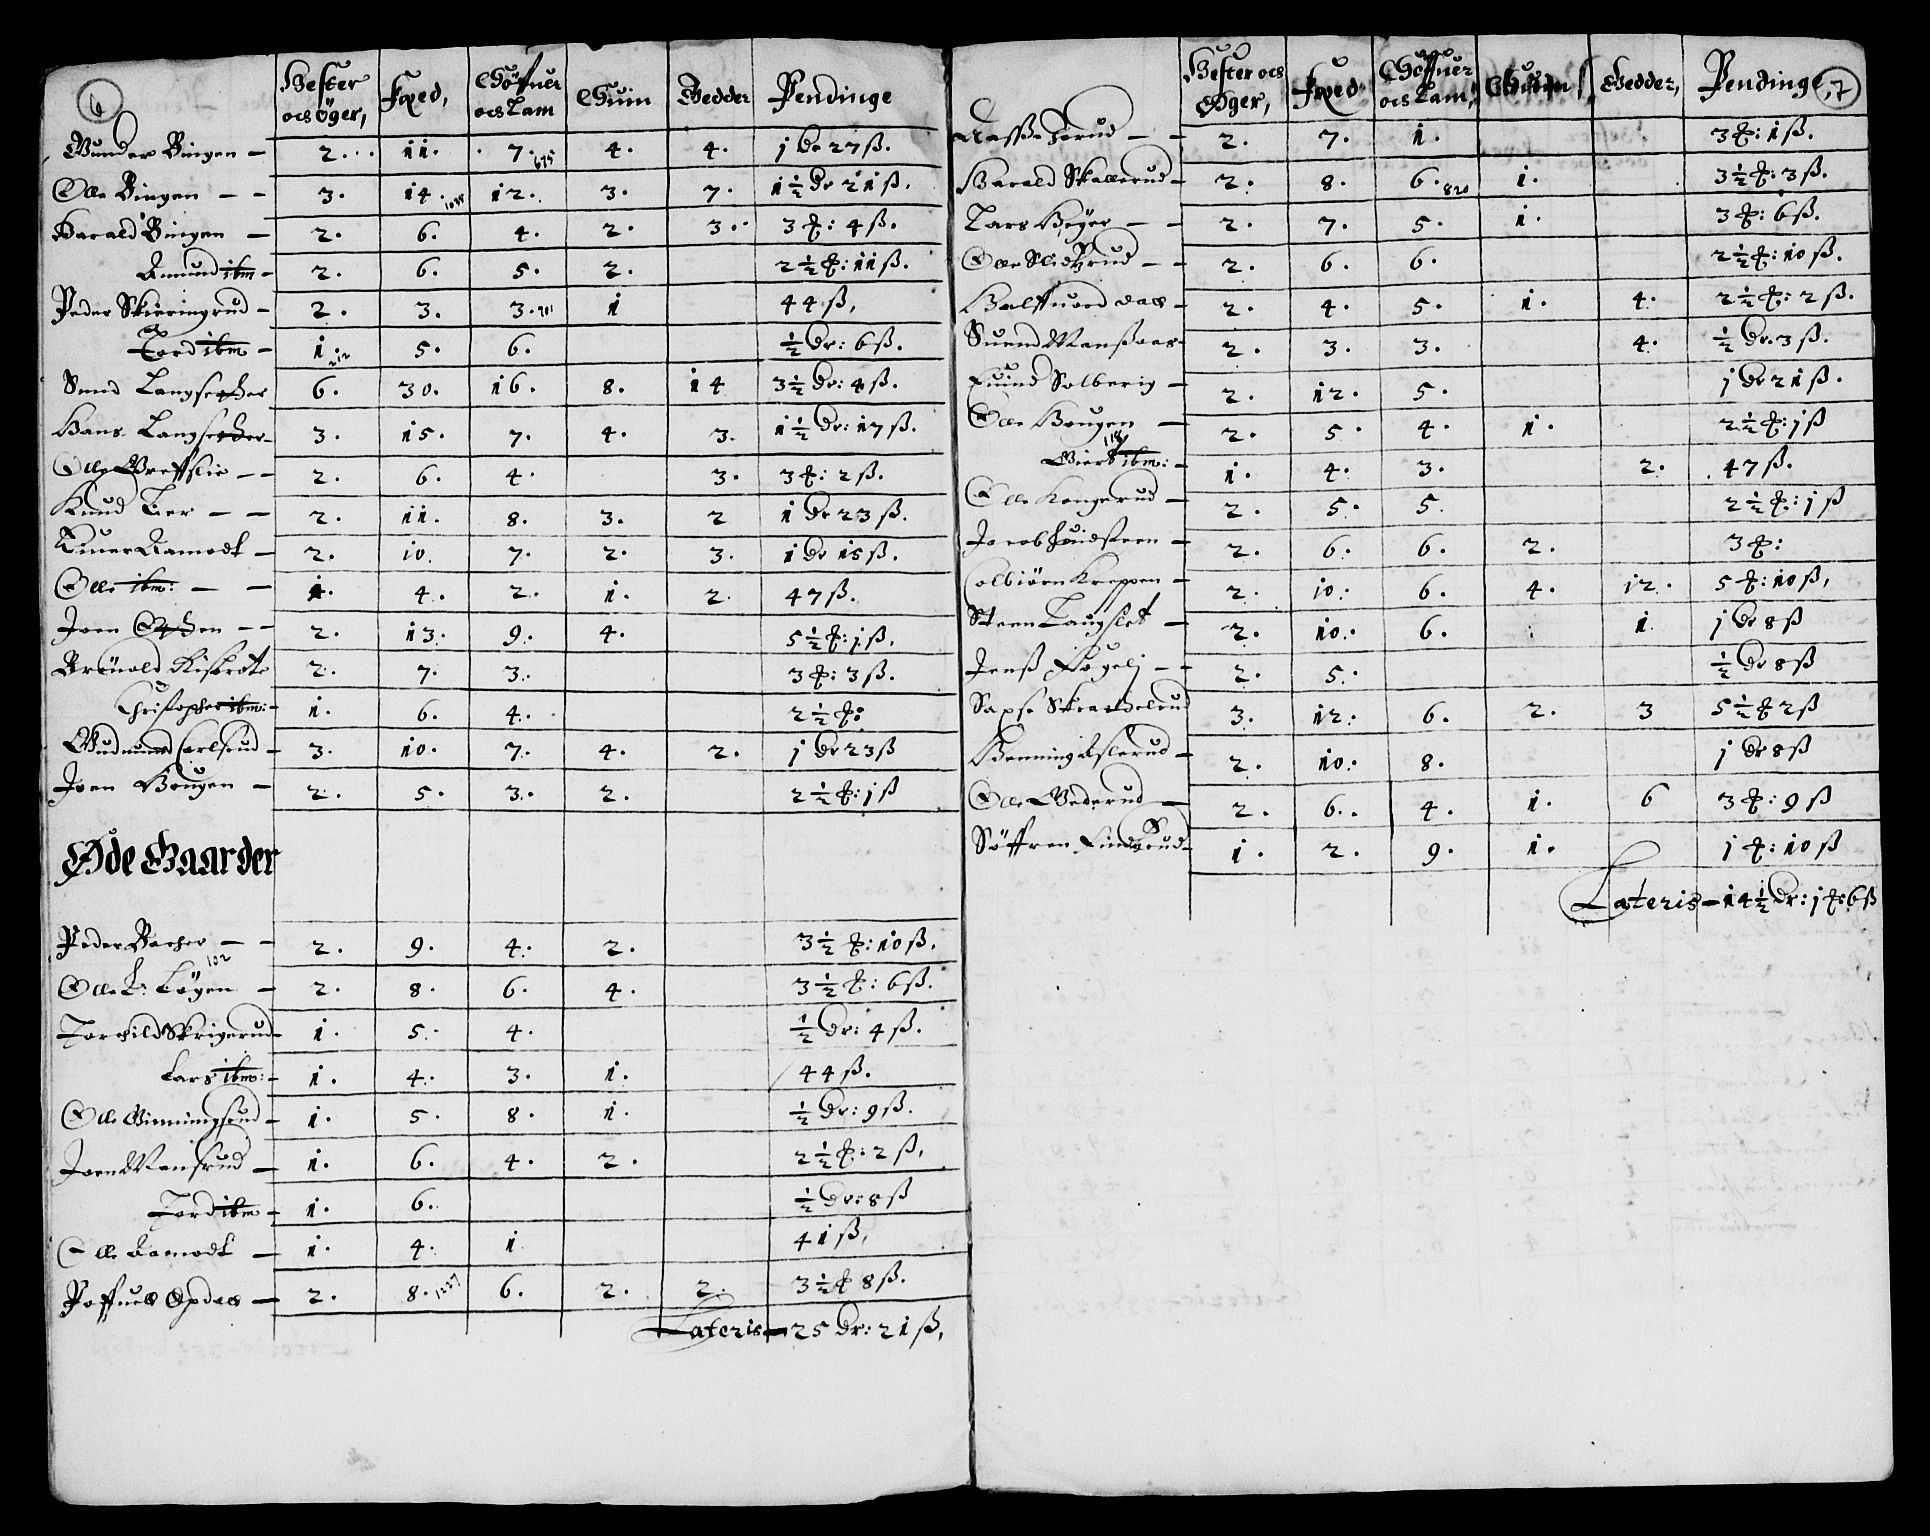 6
Hester ocs öger, Fxed, Söffuer ocs Lam Suin Gedder Pendinge
Gunder Bingen — 2. 11. 7. 675 4. 4. 1 dr 27 ß.
Olle Bingen — — 3. 14. 12. 3. 7. 1½ dr 21 ß.
Harald Bingen — 2. 6. 4. 2. 3. 3 ȶ: 4 ß.
Amund ibm — 2. 6. 5. 2. 2½ ȶ: 11 ß.
Peder Skieringrud — 2. 3. 3. 1 44 ß,
Tord ibm — 1. 5. 6. ½ dr: 6 ß.
Suend Langsether 6. 30. 16. 8. 14 3½ dr: 4 ß.
Hans Langsether 3. 15. 7. 4. 3. 1½ dr: 17 ß.
Olle Grefslie — — 2. 6. 4. 3. 3 ȶ: 2 ß.
Knud Ber — — 2. 11. 8. 3. 2 1 dr 23 ß.
Aamodt — 2. 10. 7. 2. 3. 1 dr 15 ß.
Olle ibm: — — 1. 4. 2. 1. 2. 47 ß.
Joen Othen — — 2. 13. 9. 4. 5½ ȶ: 1 ß.
2. 7. 3. 3 ȶ: 3 ß.
Christopher ibm: — 1. 6. 4. 2½ ȶ:
Gudmund Carlsrud — 3. 10. 7. 4. 2. 1 dr 23 ß
Joen Hougen — 2. 5. 3. 2. 2½ ȶ: 1 ß
Øde Gaarder
Peder Bacher — — 2. 9. 4. 2. 3½ ȶ: 10 ß.
102
Olle L: Løgen — 2. 8. 6. 4. 3½ ȶ: 6 ß.
Torchild Skrigerud 1. 5. 4. ½ dr: 4 ß.
Lars ibm: — 1. 4. 3. 1. 44 ß.
Olle Ginningsrud — 1. 5. 8. 1. ½ dr: 9 ß.
Joen Mansrud — 1. 6. 4. 2. 2½ ȶ: 2 ß,
Tord ibm — 1. 6. ½ dr: 8 ß
Olle Aamodt — 1. 4. 1 41 ß,
Poffuel Opdal — 2. 8. 1227 6. 2. 2. 3½ ȶ 8 ß.
Lateris — 25 dr: 21 ß,
7
Hester ocs Øger, Fxed Söffuer ocs Lam, Suin Gedder, Pendinge,
2. 7. 1. 3 ȶ: 1 ß.
Harald Skallerud — 2. 8. 6. 820 1. 3½ ȶ: 3 ß.
Lars Høyer — — 2. 7. 5. 1. 3 ȶ: 6 ß.
Olle Slidtzrud — — 2. 6. 6. 2½ ȶ: 10 ß.
Halffuord Daas — 2. 4. 5. 1. 4. 2½ ȶ: 2 ß.
Suend Mansaas — 2. 3. 3. 4. ½ dr. 3 ß.
Euind Solberig — 2. 12. 5. 1 dr 21 ß.
Olle Hougen — 2. 5. 4. 1. 2½ ȶ: 1 ß
118
Giert ibm: — 1. 4. 3. 2. 47 ß.
Olle Kongerud — 2. 5. 5. 2½ ȶ: 1 ß
Jacob Huidsteen — 2. 6. 6. 2. 3 ȶ:
Colbiörn Kreppen — 2. 10. 6. 4. 12. 5 ȶ: 10 ß,
Steen Laugslet — 2. 10. 6. 1 1 dr 8 ß
Jenß Fogelj — — 2. 5. ½ dr 8 ß
3. 12. 6. 2. 3 5½ ȶ 2 ß
Henning Eslerud — 2. 10. 8. 1 dr 8 ß
Olle Gederud — 2. 6. 4. 1. 6 3 ȶ: 9 ß
Söffren Findtzrud — 1. 2. 9. 1. 1 ȶ: 10 ß
Lateris — 14½ dr: 1 ȶ: 6 ß